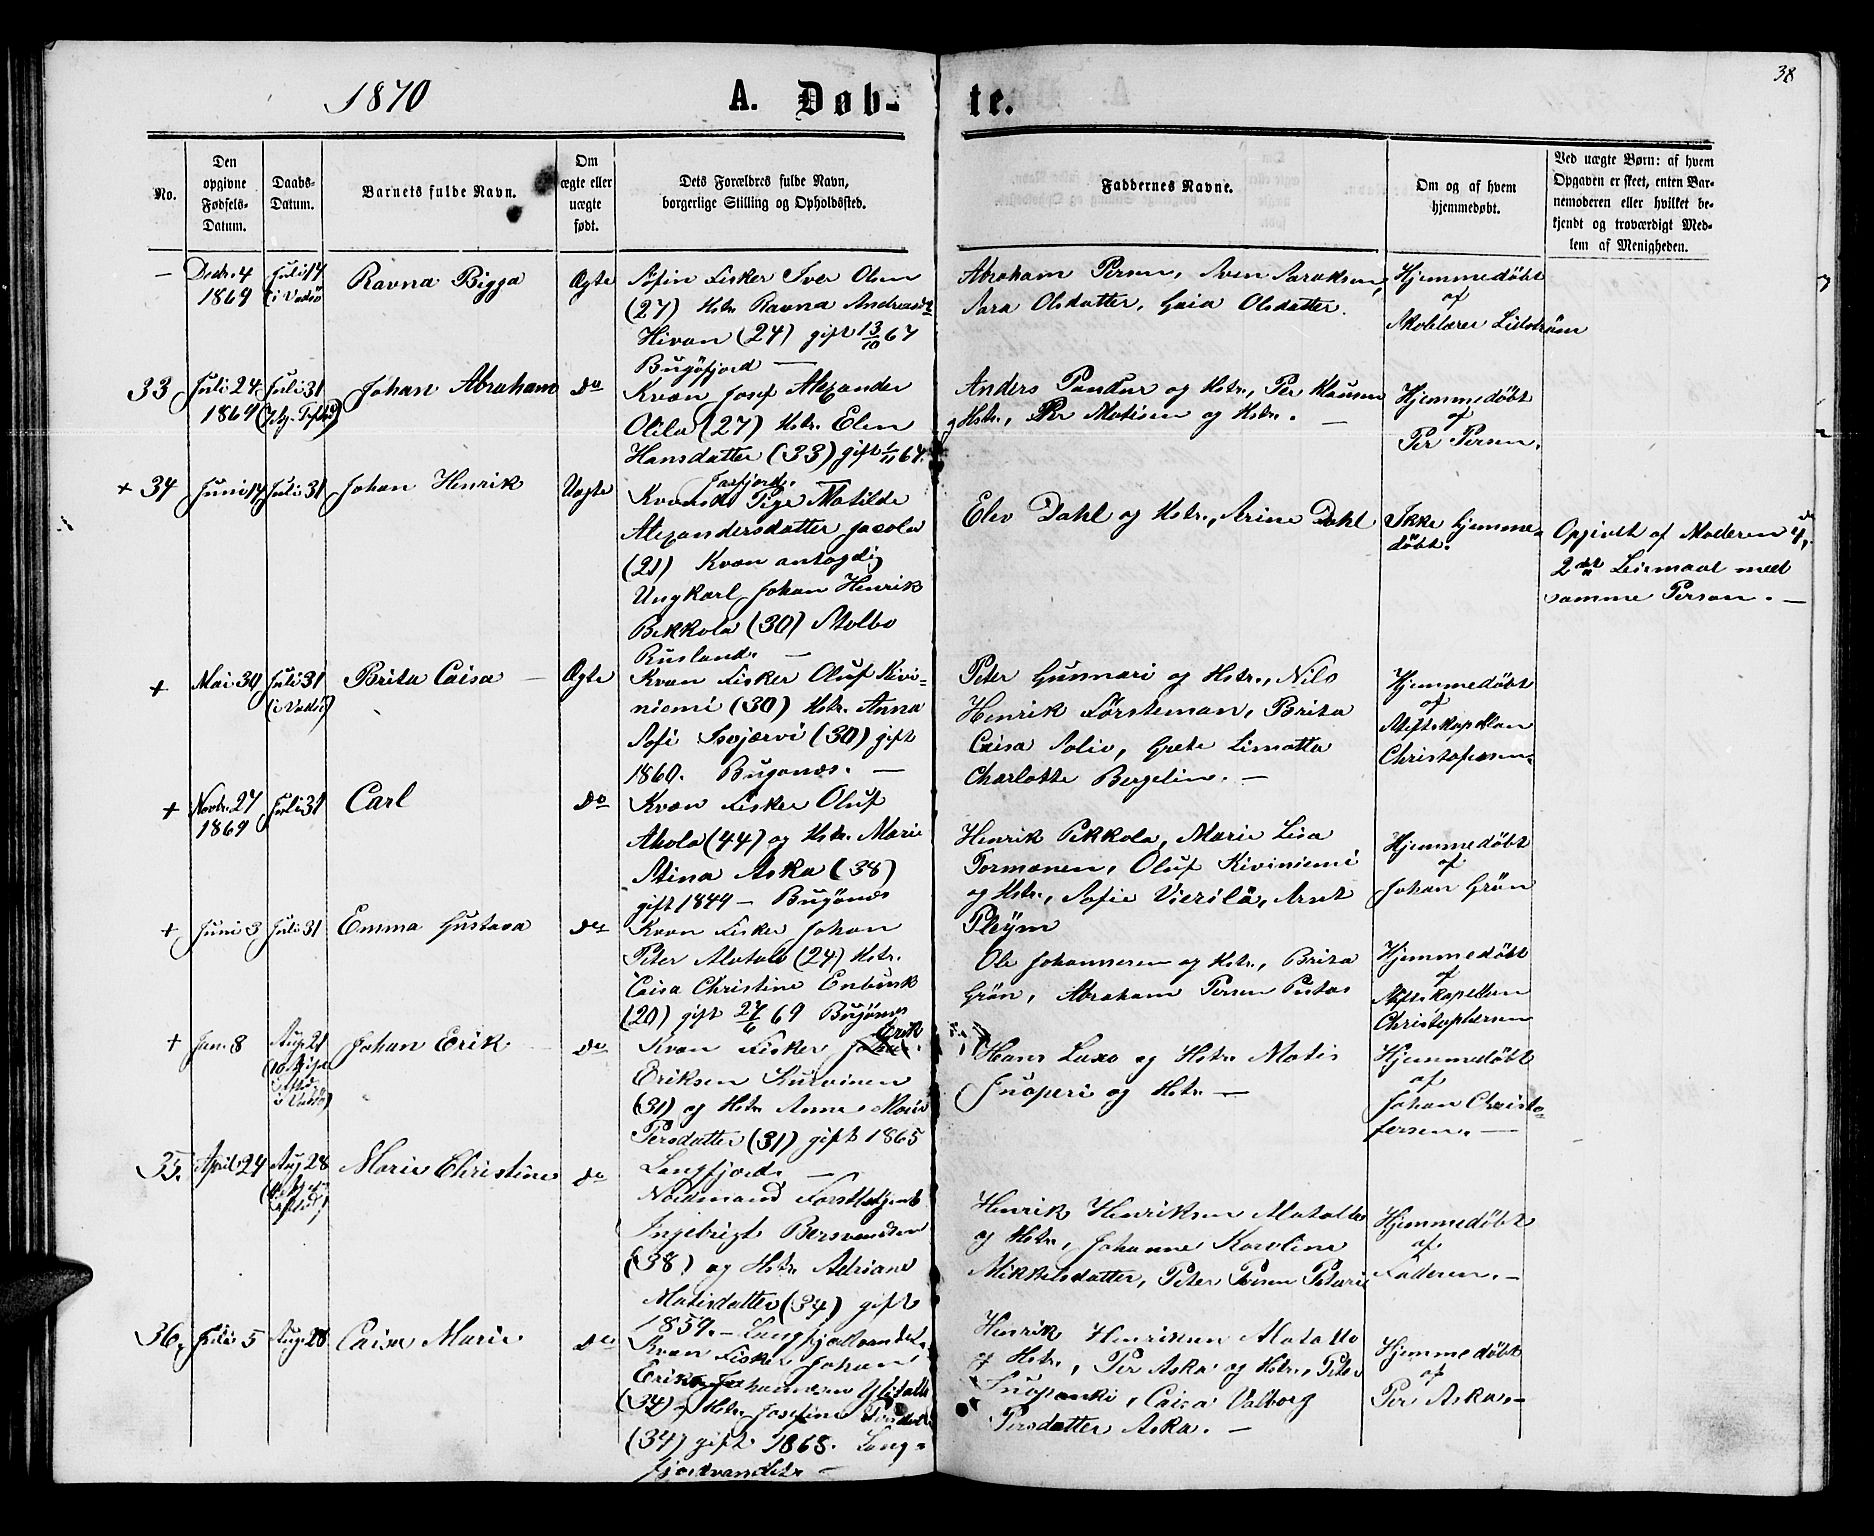 38
1870 A. Døb- te.
No.
Den opgivne Fødsels-Datum.
Daabs-Datum.
Barnets fulde Navn.
Om ægte eller uægte født.
Dets Forældres fulde Navn, borgerlige Stilling og Opholdssted.
Faddernes Navne.
Om og af hvem hjemmedøbt.
Ved uægte Børn: af hvem Opgaven er skeet, enten Barnemoderen eller hvilket bekjendt og troværdigt Medlem af Menigheden.
— Decbr. 4 1869
Juli 17 (i Vadsø)
Ravna Bigga
Ægte
Søfin Fisker Iver Olsen
(27) Hstr. Ravna Andreasdtr
Hivan (24) gift 13/10 67
Bugøfjord —
Abraham Persen, Sven Saraksen,
Sara Olsdatter, Gaia Olsdatter.
Hjemmedøbt
af
Skolelærer Lidström
33 Juli 24 1869
Juli 31
Johan Abraham
Do
Kvæn Josef Alexander
Olila (27) Hstr. Elen
Hansdatter (33) gift 1/11 67.
Jarfjord.
Anders Pandur og Hstr., Per Klausen
og Hstr., Per Matisen og Hstr. —
Hjemmedøbt
af
Per Persen.
+ 34 Juni 17
Juli 31
Johan Henrik
Uægte
Kvænsk Pige Matilde
Alexandersdatter Jacola
(21) Kvæn antagelig
Ungkarl Johan Henrik
Bekkola (30) Stolbo
Rusland. —
Elev Dahl og Hstr., Arine Dahl
Ikke hjemme-
døbt.
Opgivet af Moderen
2det Leiemaal med
samme Person. —
+ Mai 30
Juli 31 (i Vadsø)
Brita Caisa —
Ægte
Kvæn Fisker Oluf Kivi-
niemi (30) Hstr. Anna
Sofi Isojærvi (30) gift
1860. Bugønæs. —
Peter Gunnari og Hstr., Nils
Henrik Försteman, Brita
Caisa Soliv, Grete Limatta
Charlotte Bergelin. —
Hjemmedøbt
af
Stiftskapellan
Christofersen.
+ Novbr. 27 1869
Juli 31
Carl
Do
Kvæn Fisker Oluf
Akola (44) og Hstr. Marie
Stina Aska (38)
gift 1849 — Bugønæs
Henrik Pekkola, Marie Lisa
Tormænen, Oluf Kiviniemi
og Hstr., Sofie Vierilä, Arnt
Pleÿm
Hjemmedøbt
af
Johan Grön
+ Juni 3
Juli 31
Emma Gustava
Do
Kvæn Fisker Johan
Peter Matalo (24) Hstr.
Caisa Christine Enbusk
(20) gift 27/6 69 Bugønæs
Ole Johannesen og Hstr., Brita
Grön, Abraham Persen Pietas
Hjemmedøbt
af
Stiftskapellan
Christophersen
+ Jan. 8
Aug. 21
Johan Erik
Do
Kvæn Fisker Erik
Eriksen Kurvinen
(31) og Hstr. Anne Marie
Persdatter (31) gift 1865
Langfjord. —
Hans Laxo og Hstr. Matis
Juoperi og Hstr. —
Hjemmedøbt
af
Johan Christo-
fersen. —
35. April 24
Aug. 28
Marie Christine
Do
Nordmand Forstbetjent
Ingebrigt Bersvendsen
(38) og Hstr. Adriane
Matisdatter (34) gift
1859. — Langfjordvandet.
Henrik Henriksen Matalla
og Hstr., Johanne Karoline
Mikkelsdatter, Peter Persen Petarie
Hjemmedøbt
af
Faderen. —
36. Juli 5
Aug. 28
Caisa Marie
Do
Kvæn Fisker Johan
Erik Johannesen
(34) Hstr. Josefine Persdatter
(34) gift 1868. Lang-
fjordvandet. —
Henrik Henriksen Matalla
og Hstr., Per Aska og Hstr., Peter
Juopanki, Caisa Valborg
Persdatter Aska. —
Hjemmedøbt
af
Per Aska. —